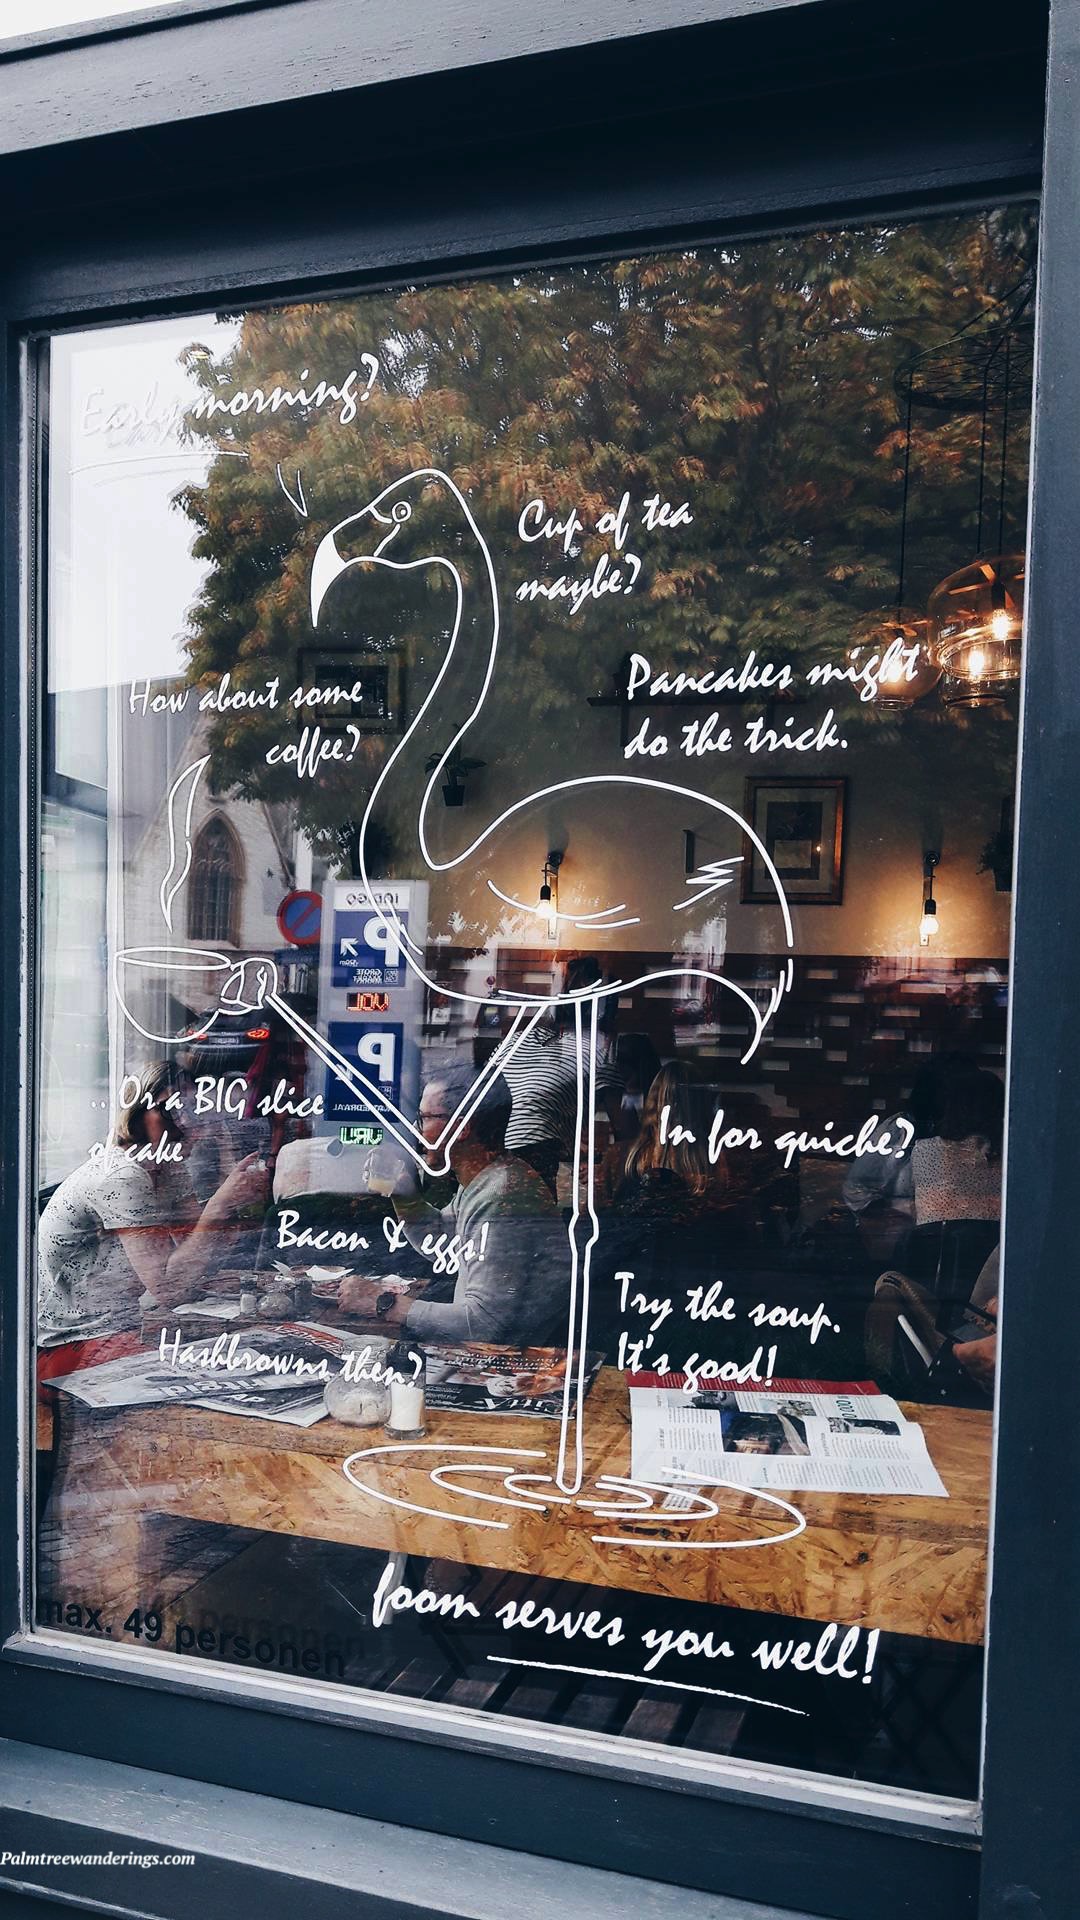 Early morning?
Cup of tea
maybe?
How about some
coffee?
Pancakes might
do the trick.
INDIGO
P
GROTE
MARKT
VOL
P
KATHEDRAAL
VRIJ
...Or a BIG slice
of cake
In for quiche?
Bacon & eggs!
Try the soup.
It's good!
Hashbrowns then?
foom serves you well!
max. 49 personen
Palmtreewanderings.com